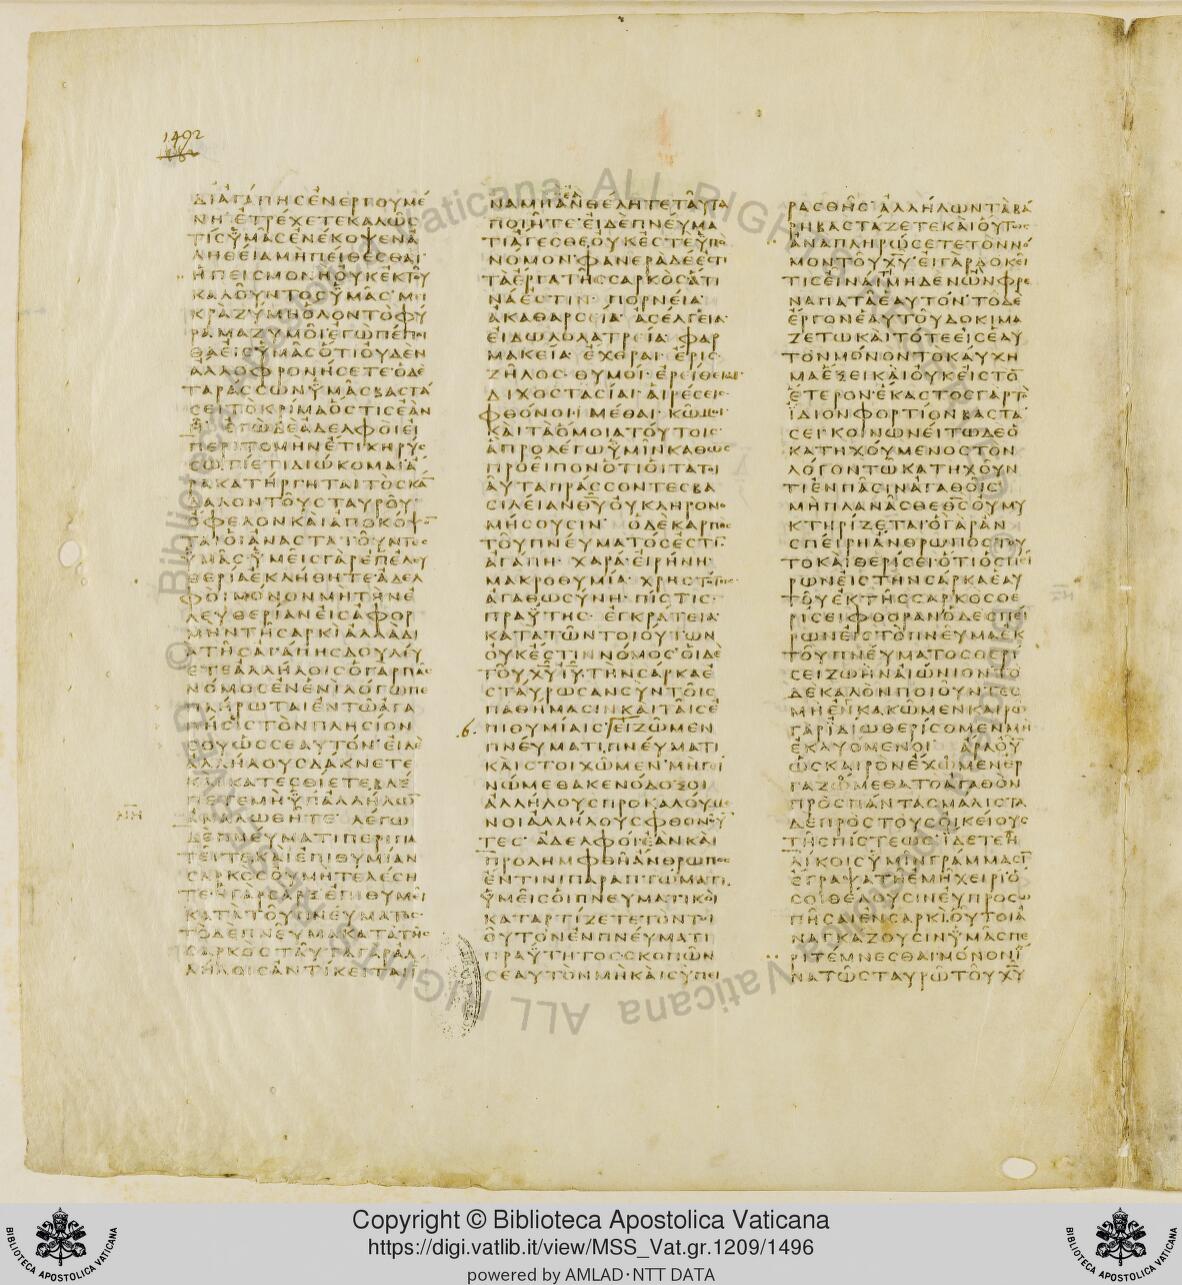 1492
ΔΙΑΓΑΠΗΣΕΝΕΡΓΟΥΜΕ
ΝΗ ΕΤΡΕΧΕΤΕΚΑΛΩΣ
ΤΙΣΫΜΑΣΕΝΕΚΟΨΕΝΑ
ΛΗΘΕΙΑΜΗΠΕΙΘΕΣΘΑΙ
ΗΠΕΙΣΜΟΝΗΟΥΚΕΚΤΟΥ
ΚΑΛΟΥΝΤΟΣΫΜΑΣ ΜΙ
ΚΡΑΖΥΜΗΟΛΟΝΤΟΦΥ
ΡΑΜΑΖΥΜΟΙΕΓΩΠΕΠΟΙ
ΘΑΕΙΣΫΜΑΣΟΤΙΟΥΔΕΝ
ΑΛΛΟΦΡΟΝΗΣΕΤΕ ΟΔΕ
ΤΑΡΑΣΣΩΝΫΜΑΣΒΑΣΤΑ
ΣΕΙΤΟΚΡΙΜΑΟΣΤΙΣΕΑΝ
Η ΕΓΩΔΕΑΔΕΛΦΟΙΕΙ
ΠΕΡΙΤΟΜΗΝΕΤΙΚΗΡΥΣ
ΣΩ ΤΙΕΤΙΔΙΩΚΟΜΑΙΑ
ΡΑΚΑΤΗΡΓΗΤΑΙΤΟΣΚΑ
ΔΑΛΟΝΤΟΥΣΤΑΥΡΟΥ
ΟΦΕΛΟΝΚΑΙΑΠΟΚΟΨΟ
ΤΑΙΟΙΑΝΑΣΤΑΤΟΥΝΤΕΣ
ΫΜΑΣ ΫΜΕΙΣΓΑΡΕΠΕΛΕΥ
ΘΕΡΙΑΕΚΛΗΘΗΤΕΑΔΕΛ
ΦΟΙΜΟΝΟΝΜΗΤΗΝΕ
ΛΕΥΘΕΡΙΑΝΕΙΣΑΦΟΡ
ΜΗΝΤΗΣΑΡΚΙΑΛΛΑΔΙ
ΑΤΗΣΑΓΑΠΗΣΔΟΥΛΕΥ
ΕΤΕΑΛΛΗΛΟΙΣΟΓΑΡΠΑΣ
ΝΟΜΟΣΕΝΕΝΙΛΟΓΩΠΕ
ΠΛΗΡΩΤΑΙΕΝΤΩΑΓΑ
ΠΗΣΙΣΤΟΝΠΛΗΣΙΟΝ
ΣΟΥΩΣΣΕΑΥΤΟΝ ΕΙΔΕ
ΑΛΛΗΛΟΥΣΔΑΚΝΕΤΕ
ΚΑΙΚΑΤΕΣΘΙΕΤΕΒΛΕ
ΠΕΤΕΜΗΫΠΑΛΛΗΛΩ
ΑΝΑΛΩΘΗΤΕ ΛΕΓΩ
ΔΕΠΝΕΥΜΑΤΙΠΕΡΙΠΑ
ΤΕΙΤΕΚΑΙΕΠΙΘΥΜΙΑΝ
ΣΑΡΚΟΣΟΥΜΗΤΕΛΕΣΗ
ΤΕ ΗΓΑΡΣΑΡΞΕΠΙΘΥΜΕΙ
ΚΑΤΑΤΟΥΠΝΕΥΜΑΤΟΣ
ΤΟΔΕΠΝΕΥΜΑΚΑΤΑΤΗΣ
ΣΑΡΚΟΣΤΑΥΤΑΓΑΡΑΛ
ΛΗΛΟΙΣΑΝΤΙΚΕΙΤΑΙΙ
ΝΑΜΗΑΝΘΕΛΗΤΕΤΑΥΤΑ
ΠΟΙΗΤΕ ΕΙΔΕΠΝΕΥΜΑ
ΤΙΑΓΕΣΘΕΟΥΚΕΣΤΕΫΠΟ
ΝΟΜΟΝ ΦΑΝΕΡΑΔΕΕΣΤΙ
ΤΑΕΡΓΑΤΗΣΣΑΡΚΟΣΑΤΙ
ΝΑΕΣΤΙΝ ΠΟΡΝΕΙΑ
ΑΚΑΘΑΡΣΙΑ ΑΣΕΛΓΕΙΑ
ΕΙΔΩΛΟΛΑΤΡΕΙΑ ΦΑΡ
ΜΑΚΕΙΑ ΕΧΘΡΑΙ ΕΡΙΣ
ΖΗΛΟΣ ΘΥΜΟΙ ΕΡΕΙΘΕΙΑΙ
ΔΙΧΟΣΤΑΣΙΑΙ ΑΙΡΕΣΕΙΣ
ΦΘΟΝΟΙ ΜΕΘΑΙ ΚΩΜΟΙ
ΚΑΙΤΑΟΜΟΙΑΤΟΥΤΟΙΣ
ΑΠΡΟΛΕΓΩΫΜΙΝΚΑΘΩΣ
ΠΡΟΕΙΠΟΝΟΤΙΟΙΤΑΤΟΙ
ΑΥΤΑΠΡΑΣΣΟΝΤΕΣΒΑ
ΣΙΛΕΙΑΝΘΥΟΥΚΛΗΡΟΝΟ
ΜΗΣΟΥΣΙΝ ΟΔΕΚΑΡΠΟΣ
ΤΟΥΠΝΕΥΜΑΤΟΣΕΣΤΙ
ΑΓΑΠΗ ΧΑΡΑ ΕΙΡΗΝΗ
ΜΑΚΡΟΘΥΜΙΑ ΧΡΗΣΤΟΤΗΣ
ΑΓΑΘΩΣΥΝΗ ΠΙΣΤΙΣ
ΠΡΑΫΤΗΣ ΕΓΚΡΑΤΕΙΑ
ΚΑΤΑΤΩΝΤΟΙΟΥΤΩΝ
ΟΥΚΕΣΤΙΝΝΟΜΟΣ ΟΙΔΕ
ΤΟΥΧΥΙΥΤΗΝΣΑΡΚΑΕ
ΣΤΑΥΡΩΣΑΝΣΥΝΤΟΙΣ
ΠΑΘΗΜΑΣΙΝΚΑΙΤΑΙΣΕ
ΠΙΘΥΜΙΑΙΣ ΕΙΖΩΜΕΝ
ΠΝΕΥΜΑΤΙ ΠΝΕΥΜΑΤΙ
ΚΑΙΣΤΟΙΧΩΜΕΝ ΜΗΓΕΙ
ΝΩΜΕΘΑΚΕΝΟΔΟΞΟΙ
ΑΛΛΗΛΟΥΣΠΡΟΚΑΛΟΥΜΕ
ΝΟΙΑΛΛΗΛΟΥΣΦΘΟΝΟΥ
ΤΕΣ ΑΔΕΛΦΟΙΕΑΝΚΑΙ
ΠΡΟΛΗΜΦΘΗΑΝΘΡΩΠΟΣ
ΕΝΤΙΝΙΠΑΡΑΠΤΩΜΑΤΙ
ΫΜΕΙΣΟΙΠΝΕΥΜΑΤΙΚΟΙ
ΚΑΤΑΡΤΙΖΕΤΕΤΟΝΤΟΙ
ΟΥΤΟΝΕΝΠΝΕΥΜΑΤΙ
ΠΡΑΫΤΗΤΟΣΣΚΟΠΩΝ
ΣΕΑΥΤΟΝΜΗΚΑΙΣΥΠΕΙ
ΡΑΣΘΗΣ ΑΛΛΗΛΩΝΤΑΒΑ
ΡΗΒΑΣΤΑΖΕΤΕΚΑΙΟΥΤΩΣ
ΑΝΑΠΛΗΡΩΣΕΤΕΤΟΝΝΟ
ΜΟΝΤΟΥΧΥ ΕΙΓΑΡΔΟΚΕΙ
ΤΙΣΕΙΝΑΙΤΙΜΗΔΕΝΩΝΦΡΕ
ΝΑΠΑΤΑΕΑΥΤΟΝ ΤΟΔΕ
ΕΡΓΟΝΕΑΥΤΟΥΔΟΚΙΜΑ
ΖΕΤΩΚΑΙΤΟΤΕΕΙΣΕΑΥ
ΤΟΝΜΟΝΟΝΤΟΚΑΥΧΗ
ΜΑΕΞΕΙΚΑΙΟΥΚΕΙΣΤΟ
ΕΤΕΡΟΝ ΕΚΑΣΤΟΣΓΑΡΤΟ
ΪΔΙΟΝΦΟΡΤΙΟΝΒΑΣΤΑ
ΣΕΙ ΚΟΙΝΩΝΕΙΤΩΔΕΟ
ΚΑΤΗΧΟΥΜΕΝΟΣΤΟΝ
ΛΟΓΟΝΤΩΚΑΤΗΧΟΥΝ
ΤΙΕΝΠΑΣΙΝΑΓΑΘΟΙΣ
ΜΗΠΛΑΝΑΣΘΕΘΣΟΥΜΥ
ΚΤΗΡΙΖΕΤΑΙ ΟΓΑΡΑΝ
ΣΠΕΙΡΗΑΝΘΡΩΠΟΣΤΟΥ
ΤΟΚΑΙΘΕΡΙΣΕΙ ΟΤΙΟΣΠΕΙ
ΡΩΝΕΙΣΤΗΝΣΑΡΚΑΕΑΥ
ΤΟΥΕΚΤΗΣΣΑΡΚΟΣΘΕ
ΡΙΣΕΙΦΘΟΡΑΝΟΔΕΣΠΕΙ
ΡΩΝΕΙΣΤΟΠΝΕΥΜΑΕΚ
ΤΟΥΠΝΕΥΜΑΤΟΣΘΕΡΙ
ΣΕΙΖΩΗΝΑΙΩΝΙΟΝΤΟ
ΔΕΚΑΛΟΝΠΟΙΟΥΝΤΕΣ
ΜΗΕΝΚΑΚΩΜΕΝΚΑΙΡΩ
ΓΑΡΪΔΙΩΘΕΡΙΣΟΜΕΝΜΗ
ΕΚΛΥΟΜΕΝΟΙ ΑΡΑΟΥ
ΩΣΚΑΙΡΟΝΕΧΩΜΕΝΕΡ
ΓΑΖΩΜΕΘΑΤΟΑΓΑΘΟΝ
ΠΡΟΣΠΑΝΤΑΣΜΑΛΙΣΤΑ
ΔΕΠΡΟΣΤΟΥΣΟΙΚΕΙΟΥΣ
ΤΗΣΠΙΣΤΕΩΣ ΪΔΕΤΕΗ
ΛΙΚΟΙΣΫΜΙΝΓΡΑΜΜΑΣΙ
ΕΓΡΑΨΑΤΗΕΜΗΧΕΙΡΙΟ
ΣΟΙΘΕΛΟΥΣΙΝΕΥΠΡΟΣΩ
ΠΗΣΑΙΕΝΣΑΡΚΙΟΥΤΟΙΑ
ΝΑΓΚΑΖΟΥΣΙΝΫΜΑΣΠΕ
ΡΙΤΕΜΝΕΣΘΑΙΜΟΝΟΝΪ
ΝΑΤΩΣΤΑΥΡΩΤΟΥΧΥ
Copyright © Biblioteca Apostolica Vaticana
https://digi.vatlib.it/view/MSS_Vat.gr.1209/1496
powered by AMLAD·NTT DATA